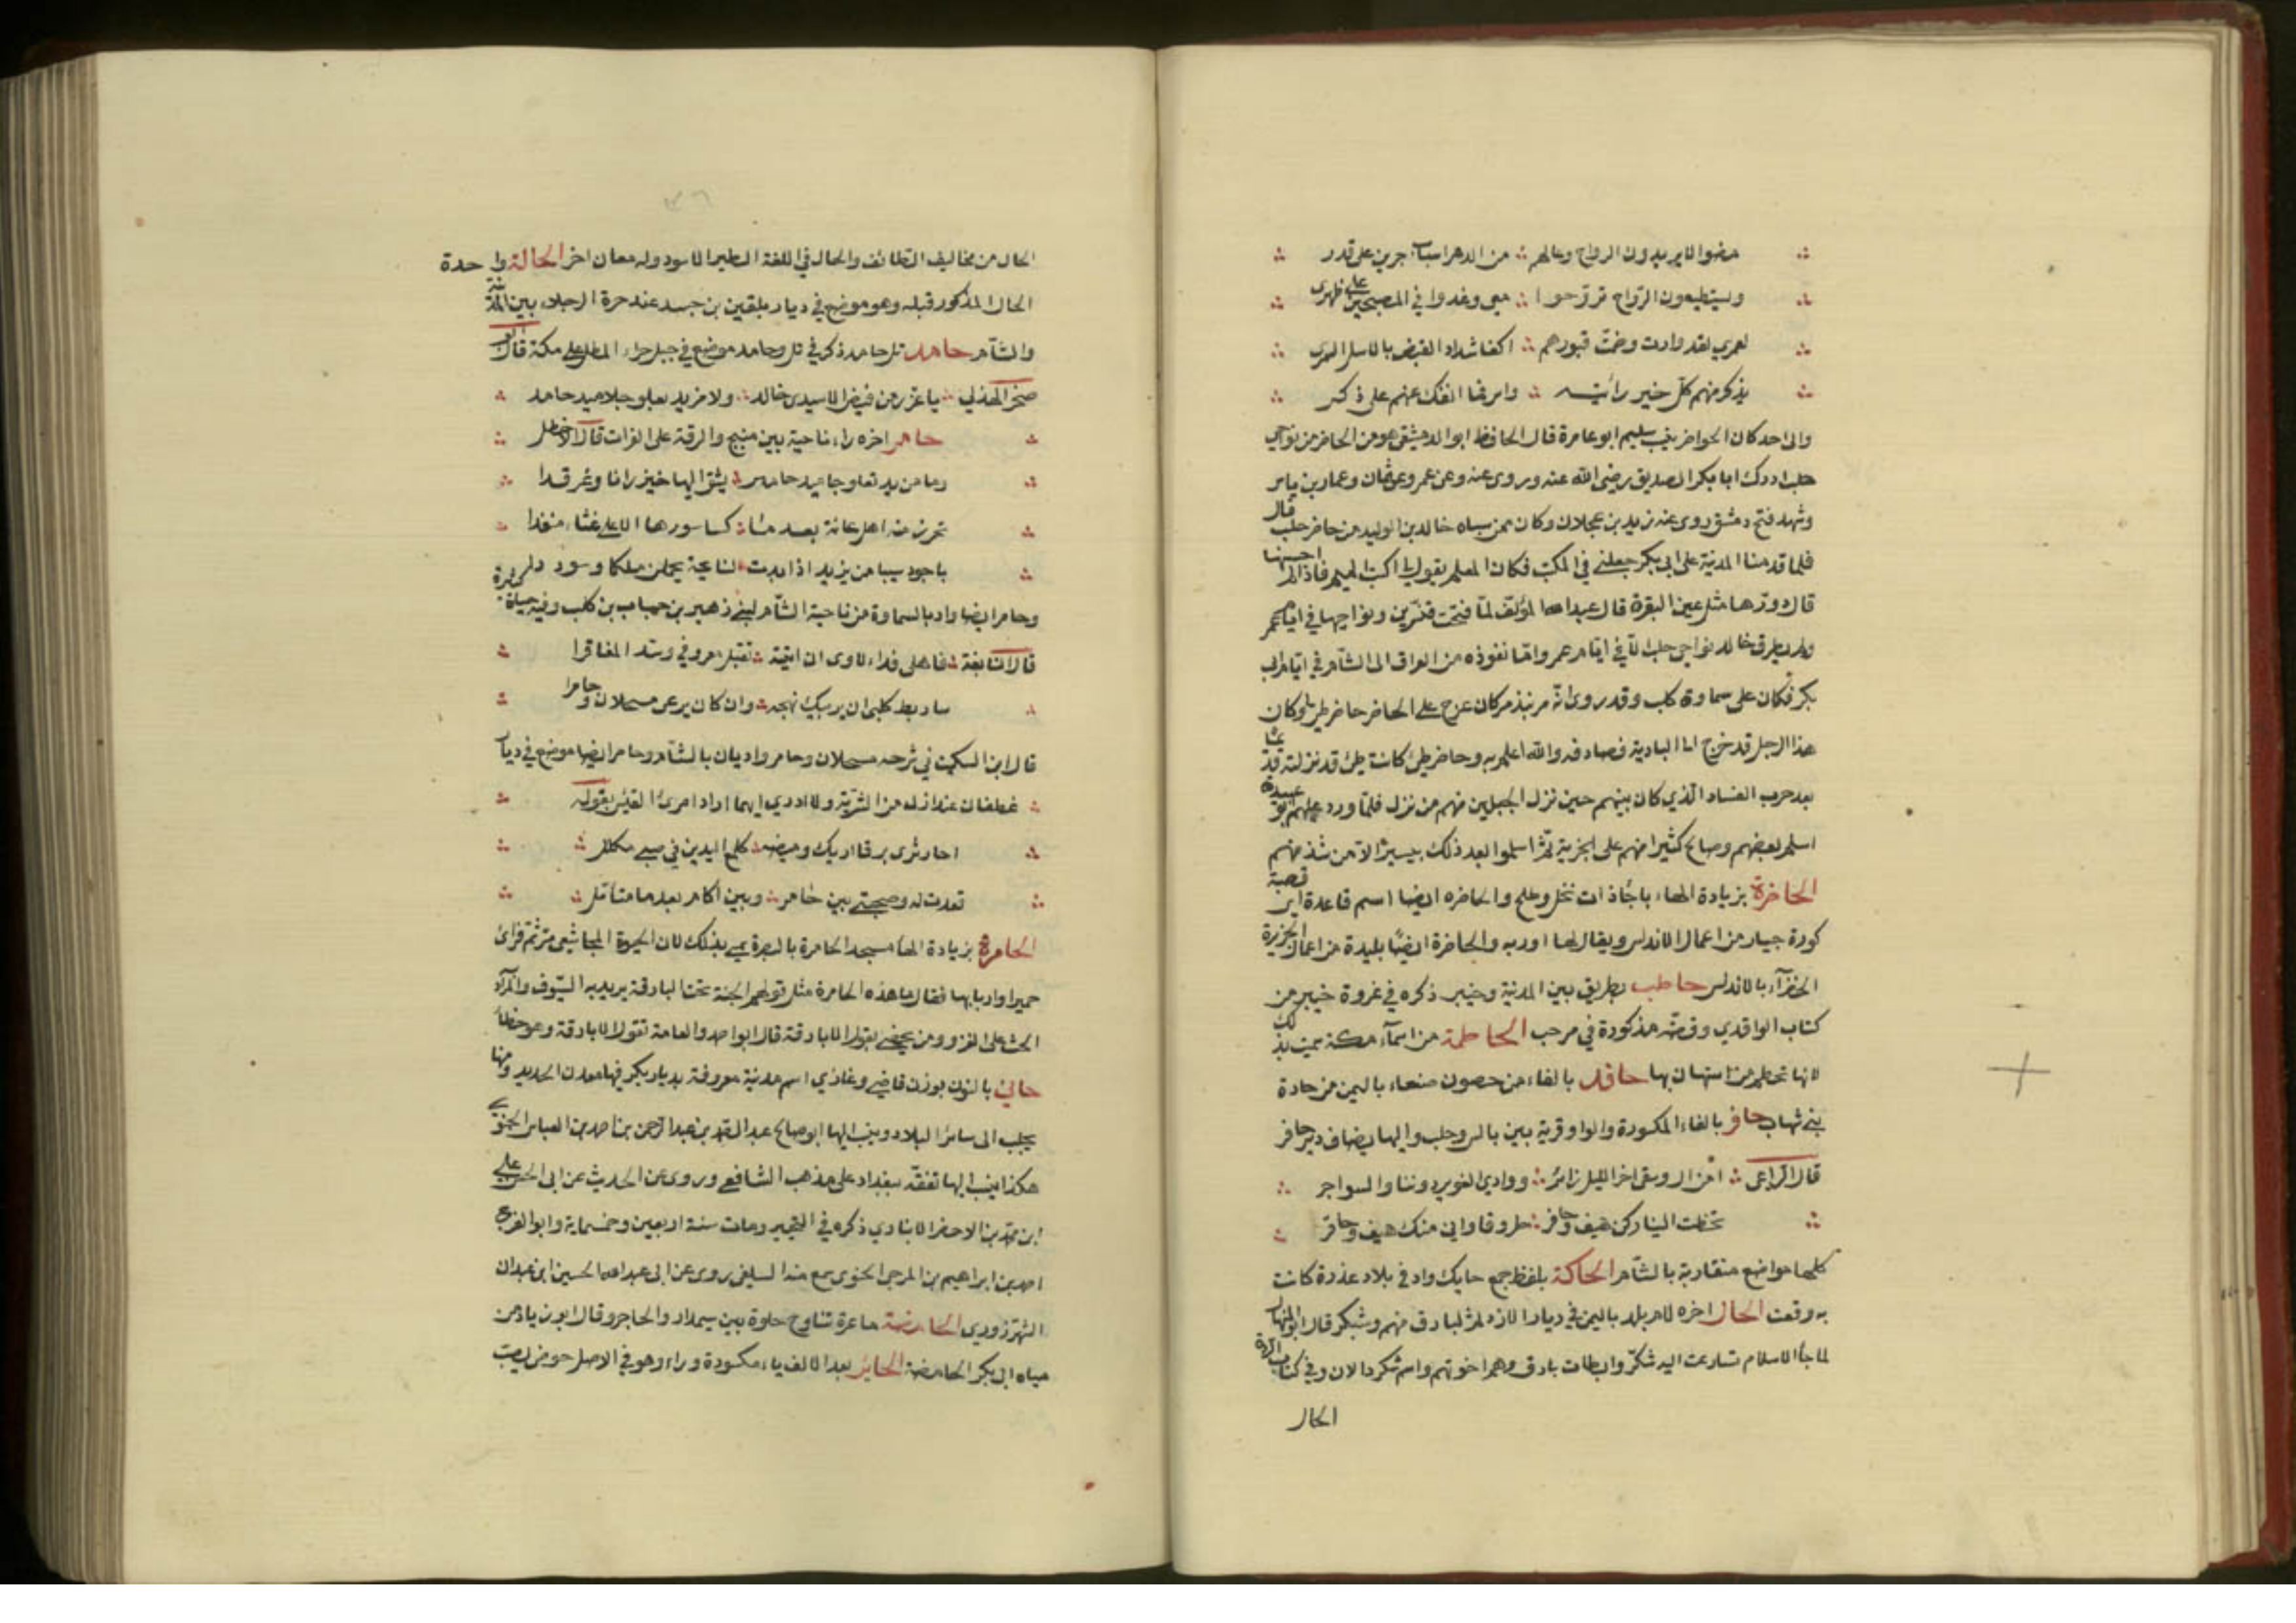 مضوا لا يريدون الرواح وغالهم من الدهر اسباب جرين على قدر
ويستطيعون الرواح تروّحوا معي وغدوا في المصبحين على ظهرى
لعمري لقد وارت وضمّت قبورهم اكفا شداد القبض بالاسل السمر
يذكرنيهم كلّ خير رأيته وشر فما انفك عنهم على ذكر
والى احد كان الحواضر ينسب سليم ابو عامرة قال الحافظ ابو الدمشقي هو من الحاضر من نواحي
حلب ادرك ابا بكر الصديق رضي الله عنه وروى عنه وعن عمر وعثمان وعمار بن ياسر
وشهد فتح دمشق روى عنه زيد بن عجلان وكان ممن سباه خالد بن الوليد من حاضر حلب قال
فلما قدمنا المدينة على ابي بكر جعلني في المكتب فكان المعلم يقول لي اكتب الميم فاذا لم احسنها
قال دورها مثل عين البقرة قال عبد الله المؤلف لمّا فتحت قنّسرين ونواحيها في ايام عمر
ولم يطرق خالد نواحي حلب الّا في ايّام عمر وامّا نفوذه من العراق الى الشأم في ايّام ابي
بكر فكان على سماوة كلب وقد روى انّه مر بتدمر كان عرج على الحاضر حاضر طيّ وكان
هذا الرجل قد خرج الى البادية فصادفه والله اعلم به وحاضر طيّ كانت طيّ قد نزلته قديما
بعد حرب الفساد الّذي كان بينهم حين نزل الجبلين منهم من نزل فلمّا ورد عليهم ابو عبيدة
اسلم بعضهم وصالح كثيرا منهم على الجزية ثمّ اسلموا بعد ذلك بيسير الّا من شذ منهم
الحاضرة بزيادة الهاء باجأ ذات نخل وطلح والحاضره ايضا اسم قاعدة اي قصبة
كورة جيان من اعمال الاندلس ويقال لها اوربه والحاضرة ايضًا بليدة من اعمال الجزيرة
الخضرآء بالاندلس حاطب بطريق بين المدينة وخيبر ذكره في غزوة خيبر من
كتاب الواقدي وقصّته مذكورة في مرحب الحاطمة من اسمآء مكة سميت بذلك
لانها تحطم من استهان بها حافد بالفاء من حصون صنعاء باليمن من حازة
بني شهاب حافر بالفاء المكسورة والراء قرية بين بالس وحلب واليها يضاف دير حافر
قال الراعى امن ال وسقى اخر الليل زائر ووادي الغوير دوننا والسواجر
تخطت الينا ركن هيف وحافر طروقا وانى منك هيف وحافر
كلها مواضع متقاربة بالشأم الحاكة بلفظ جمع حايك واد في بلاد عذرة كانت
به وقعت الحال اخره لام بلد باليمن في ديار الازد ثم لبارق منهم وشكر قال ابو المنهال
لما جاء الاسلام تسارعت اليه شكر وابطات بارق وهم اخوتهم واسم شكر والان وفي كتاب الردة
الحال
الحال من مخاليف الطائف والحال في اللغة الطير الاسود وله معان اخر الحالة واحدة
الحال المذكور قبله وهو موضع في ديار بلقين بن جسر عند حرة الرجلاء بين المدينة
والشأم حامد تل حامد ذكر في تل وحامد موضع في جبل حراء المطل على مكة قال ابو
صخر الهذلي يا عزر من فيض الاسيدى خالد ولا مزبد يعلو جلاميد حامد
حامر اخره راء ناحية بين منبج والرقة على الفرات قال الاخطل
وما مزبد يعلو جلاميد حامر يشق اليها خيزرانا وغرقدا
تحرز منه اهل عانة بعد ما كسا سورها الاعلى غثاء منضدا
باجود سيبا من يزيد اذا بدت لنا بخته يحملن ملكا وسوددا
وحامر ايضا واد بالسماوة من ناحية الشأم لبني زهير بن جناب بن كلب وفيه حياة كثيرة
قال النابغة فاهلى فداء لامرئ ان اتيته تقبل معروفي وسد المفاقرا
ساربط كلبى ان يريبك نبحه وان كان يرعى مسحلان وحامرا
قال ابن السكيت في شرحه مسحلان وحامر واديان بالشأم وحامر ايضا موضع في ديار
غطفان عند ازل من الشربّة ولا ادري ايهما اراد امرئ القيس بقوله
احار ترى برقا اريك وميضه كلمع اليدين في حبي مكلل
قعدت له وصحبتي بين حامر وبين اكام بعد ما متأمل
الحامرة بزيادة الهآ مسجد الحامرة بالبصرة سمي بذلك لان الحتات المجاشعي مرّ ثم فرأى
حميرا واربابها فقال ما هذه الحامرة مثل قولهم الجنة تحت البارقة يريد به السّيوف والمراد
الحث على الغزو ومن يحضني يقول الابارقة قال ابو احمد والعامة تقول الابارقة وهو خطأ
حاني بالنون بوزن قاضي وغازي اسم مدينة معروفة بديار بكر فيها معدن الحديد ومنها
يجلب الى سائر البلاد وينسب اليها ابو صالح عبد الصمد بن عبد الرحمن بن احمد بن العباس الحنوي
هكذا ينسب اليها تفقّه ببغداد على مذهب الشافعي وروى عن الحديث عن ابي الحسن علي
ابن محمد بن الاخضر الانباري ذكره في التحبير ومات سنة اربعين وخمسماية وابو الفرج
احمد بن ابراهيم بن المرجى الحنوى سمع منه السلفى روى عن ابى عبد الله الحسين ابن عبدان
الشهرزوري الحامضة ماءة تناوح حلوة بين سميراء والحاجر وقال ابو زياد من
مياه ابي بكر الحامضة الحاير بعد الالف ياء مكسورة وراء وهو في الاصل حوض يصب